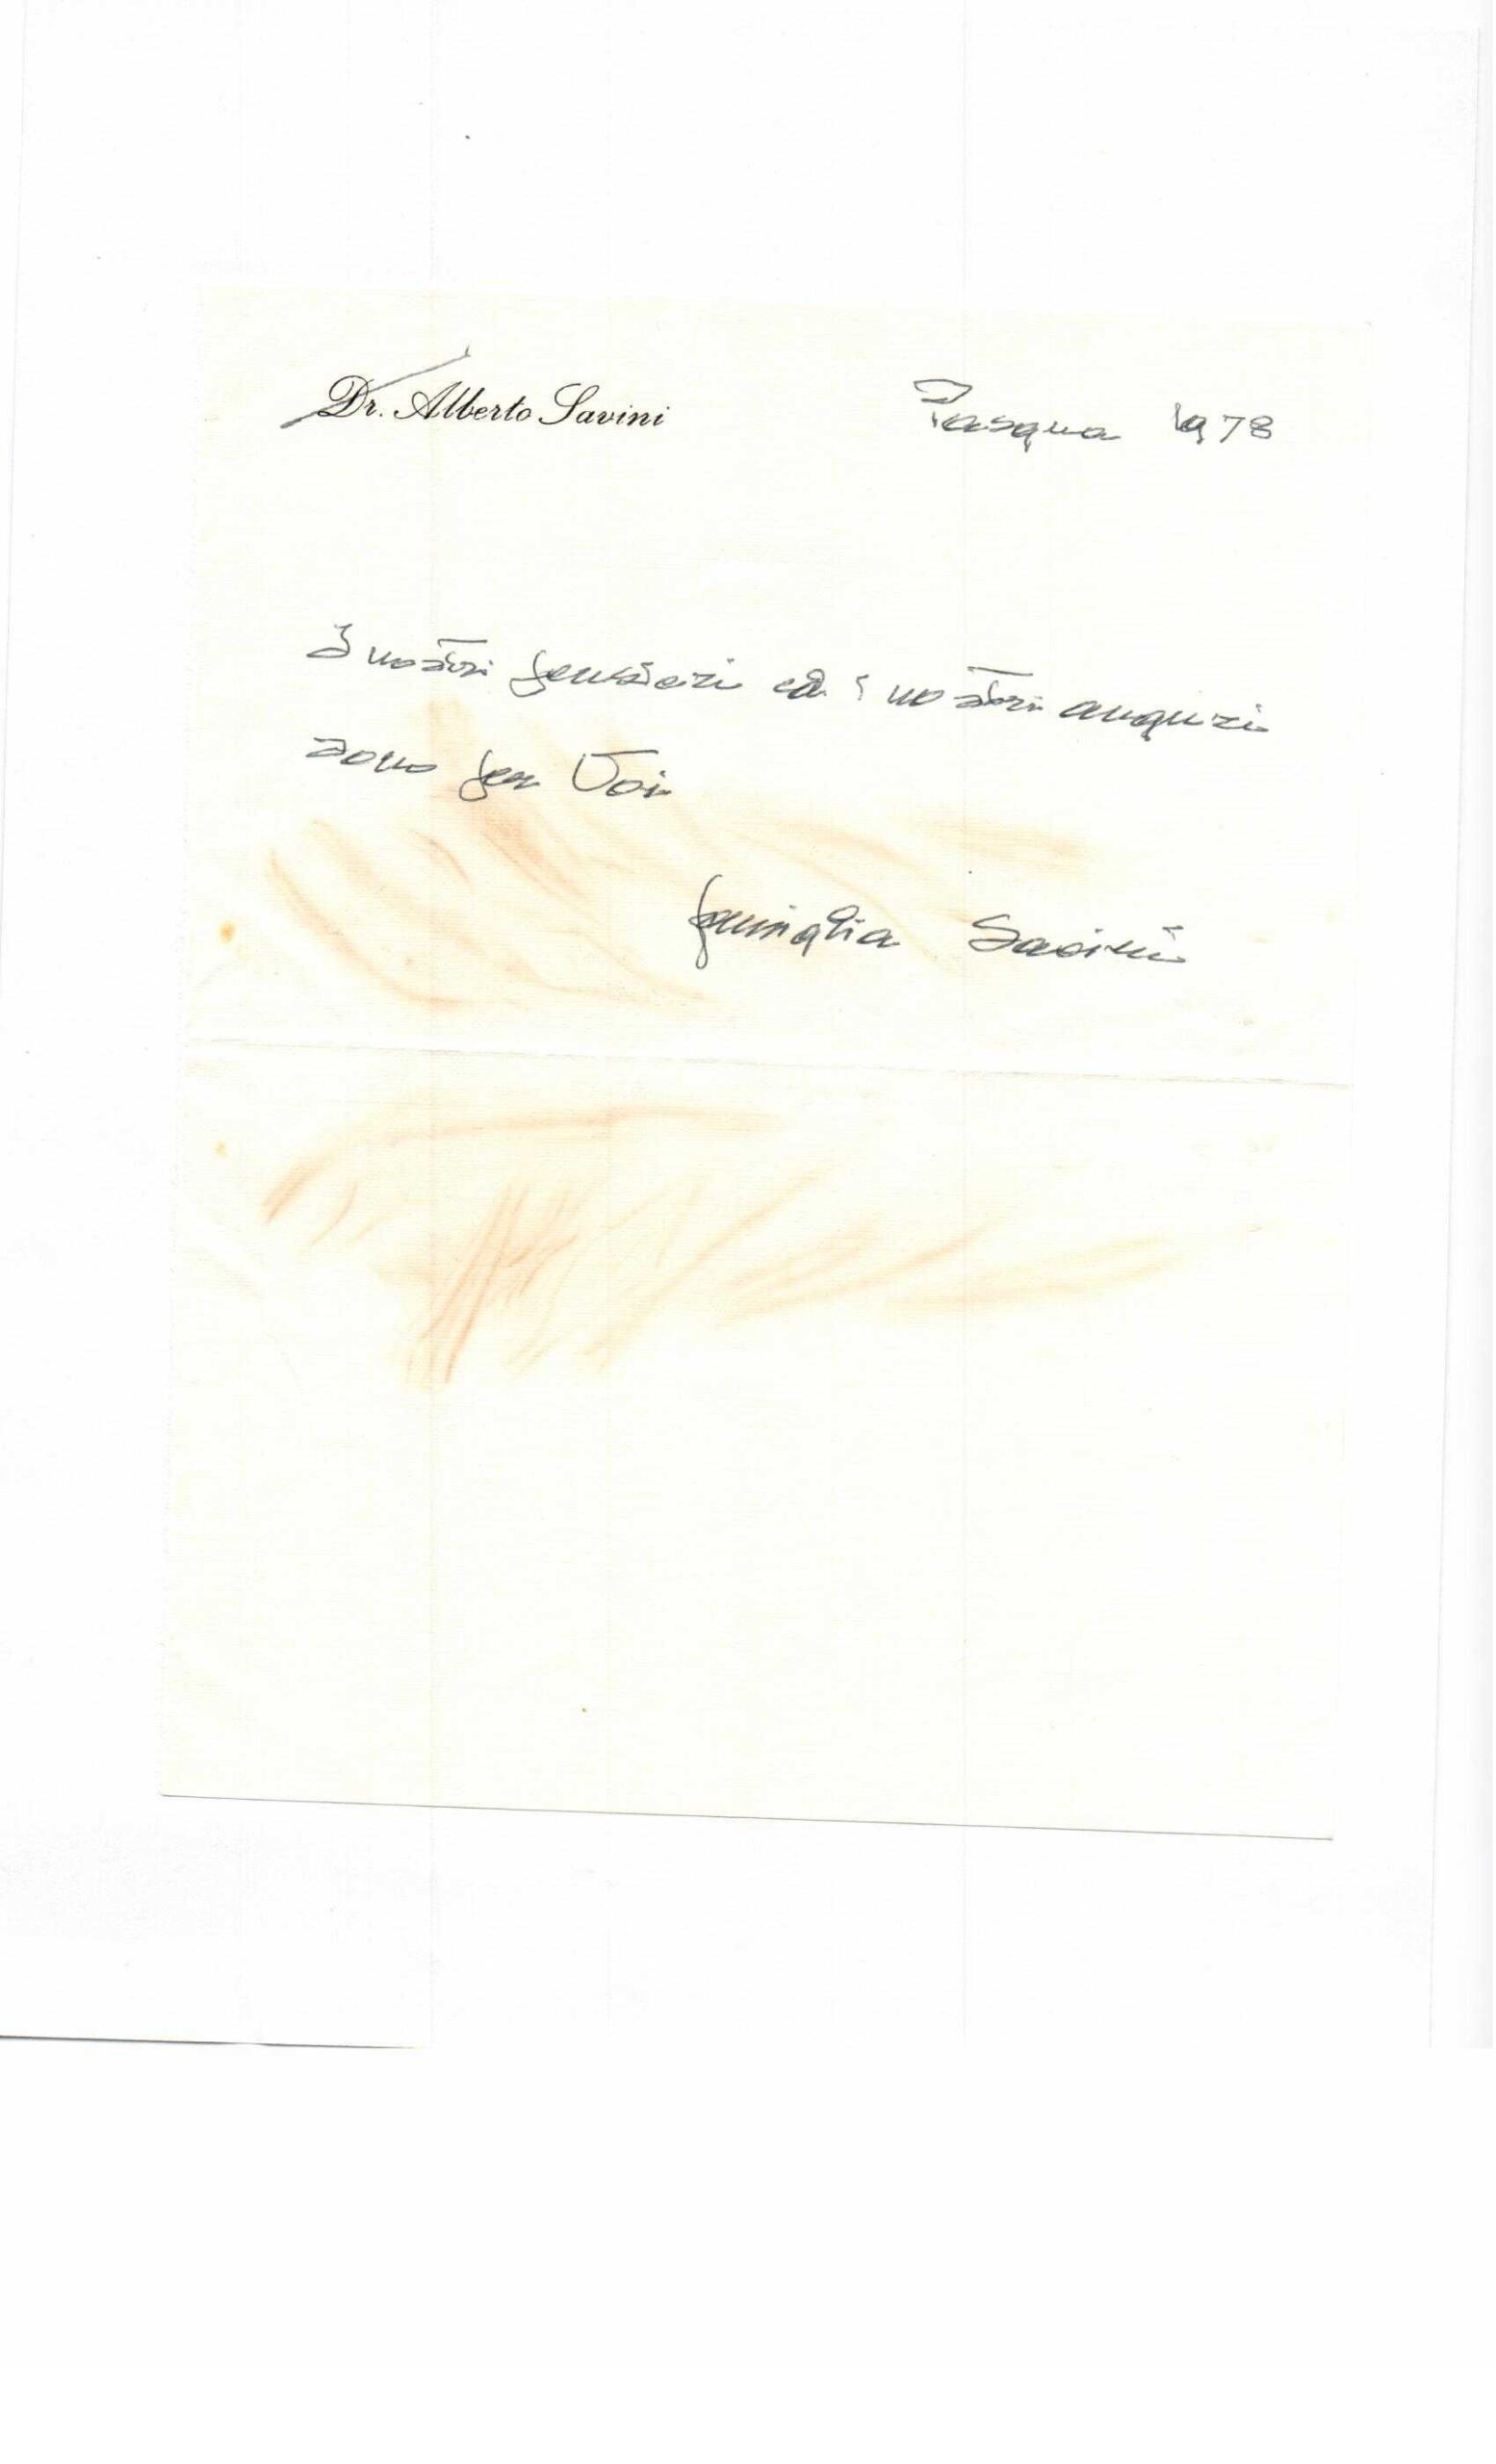 Dr. Alberto Savini
Pasqua 1978
I nostri pensieri ed i nostri auguri
sono per Voi
famiglia Savini